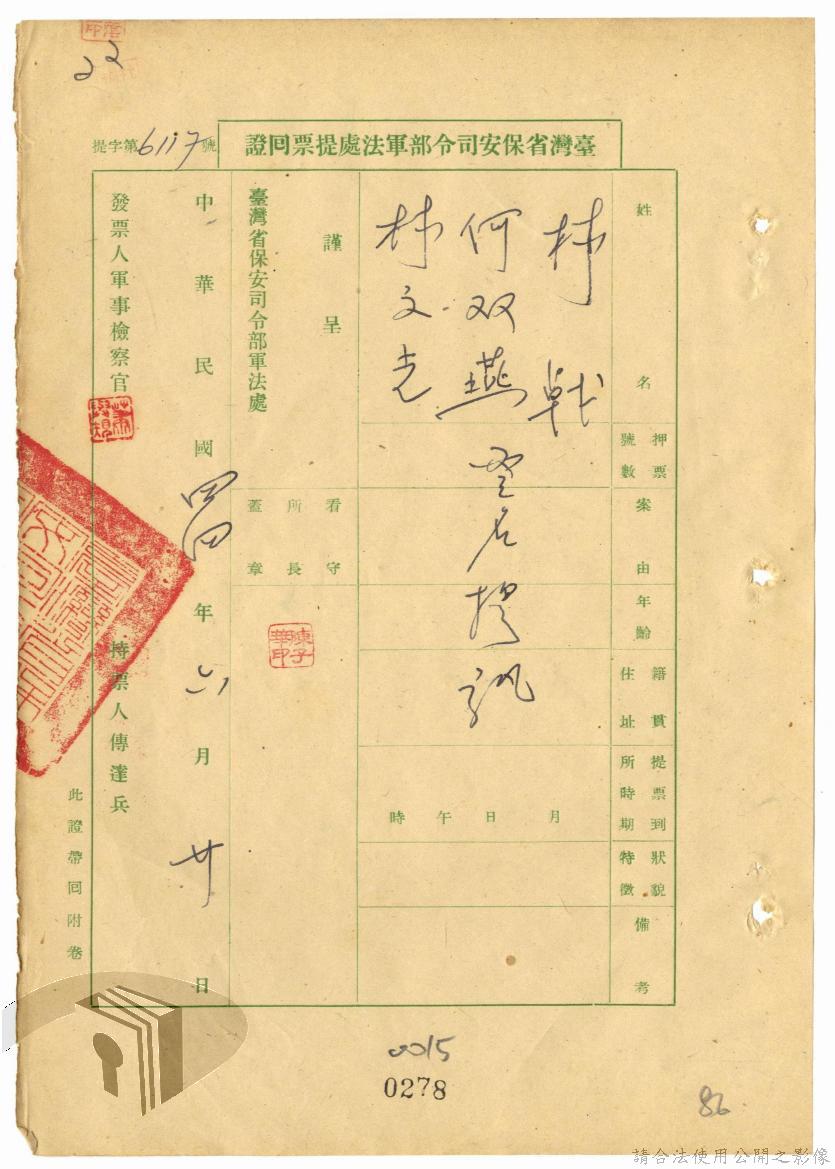 22
臺灣省保安司令部軍法處提票回證
提字第6117號
姓名
押票號數
案由
年齡
籍貫住址
提票到所時期
狀貌特徵
備考
林
何双燕
林文
名提訊
月日午時
謹呈
看守所長蓋章
陳子華印
臺灣省保安司令部軍法處
中華民國四四年六月廿日
發票人軍事檢察官
持票人傳達兵
此證帶回附卷
0015
0278
86
請合法使用公開之影像